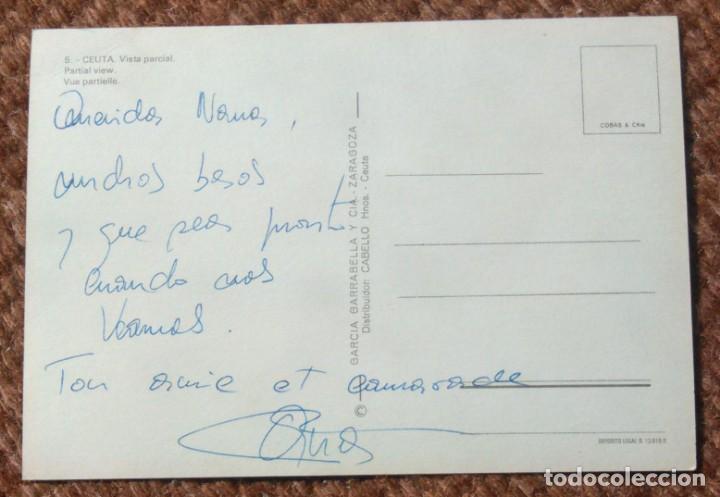 5. - CEUTA. Vista parcial.
Partial view.
Vue partielle.
COBAS & CKIA
Queridos Nonos,
muchos besos
y que sea pronto
cuando nos
Veamos.
Ton amie et camarade
GARCIA BARRABELLA Y CIA. - ZARAGOZA
Distribuidor: CABELLO Hnos. - Ceuta
©
DEPOSITO LEGAL B.
todocoleccion